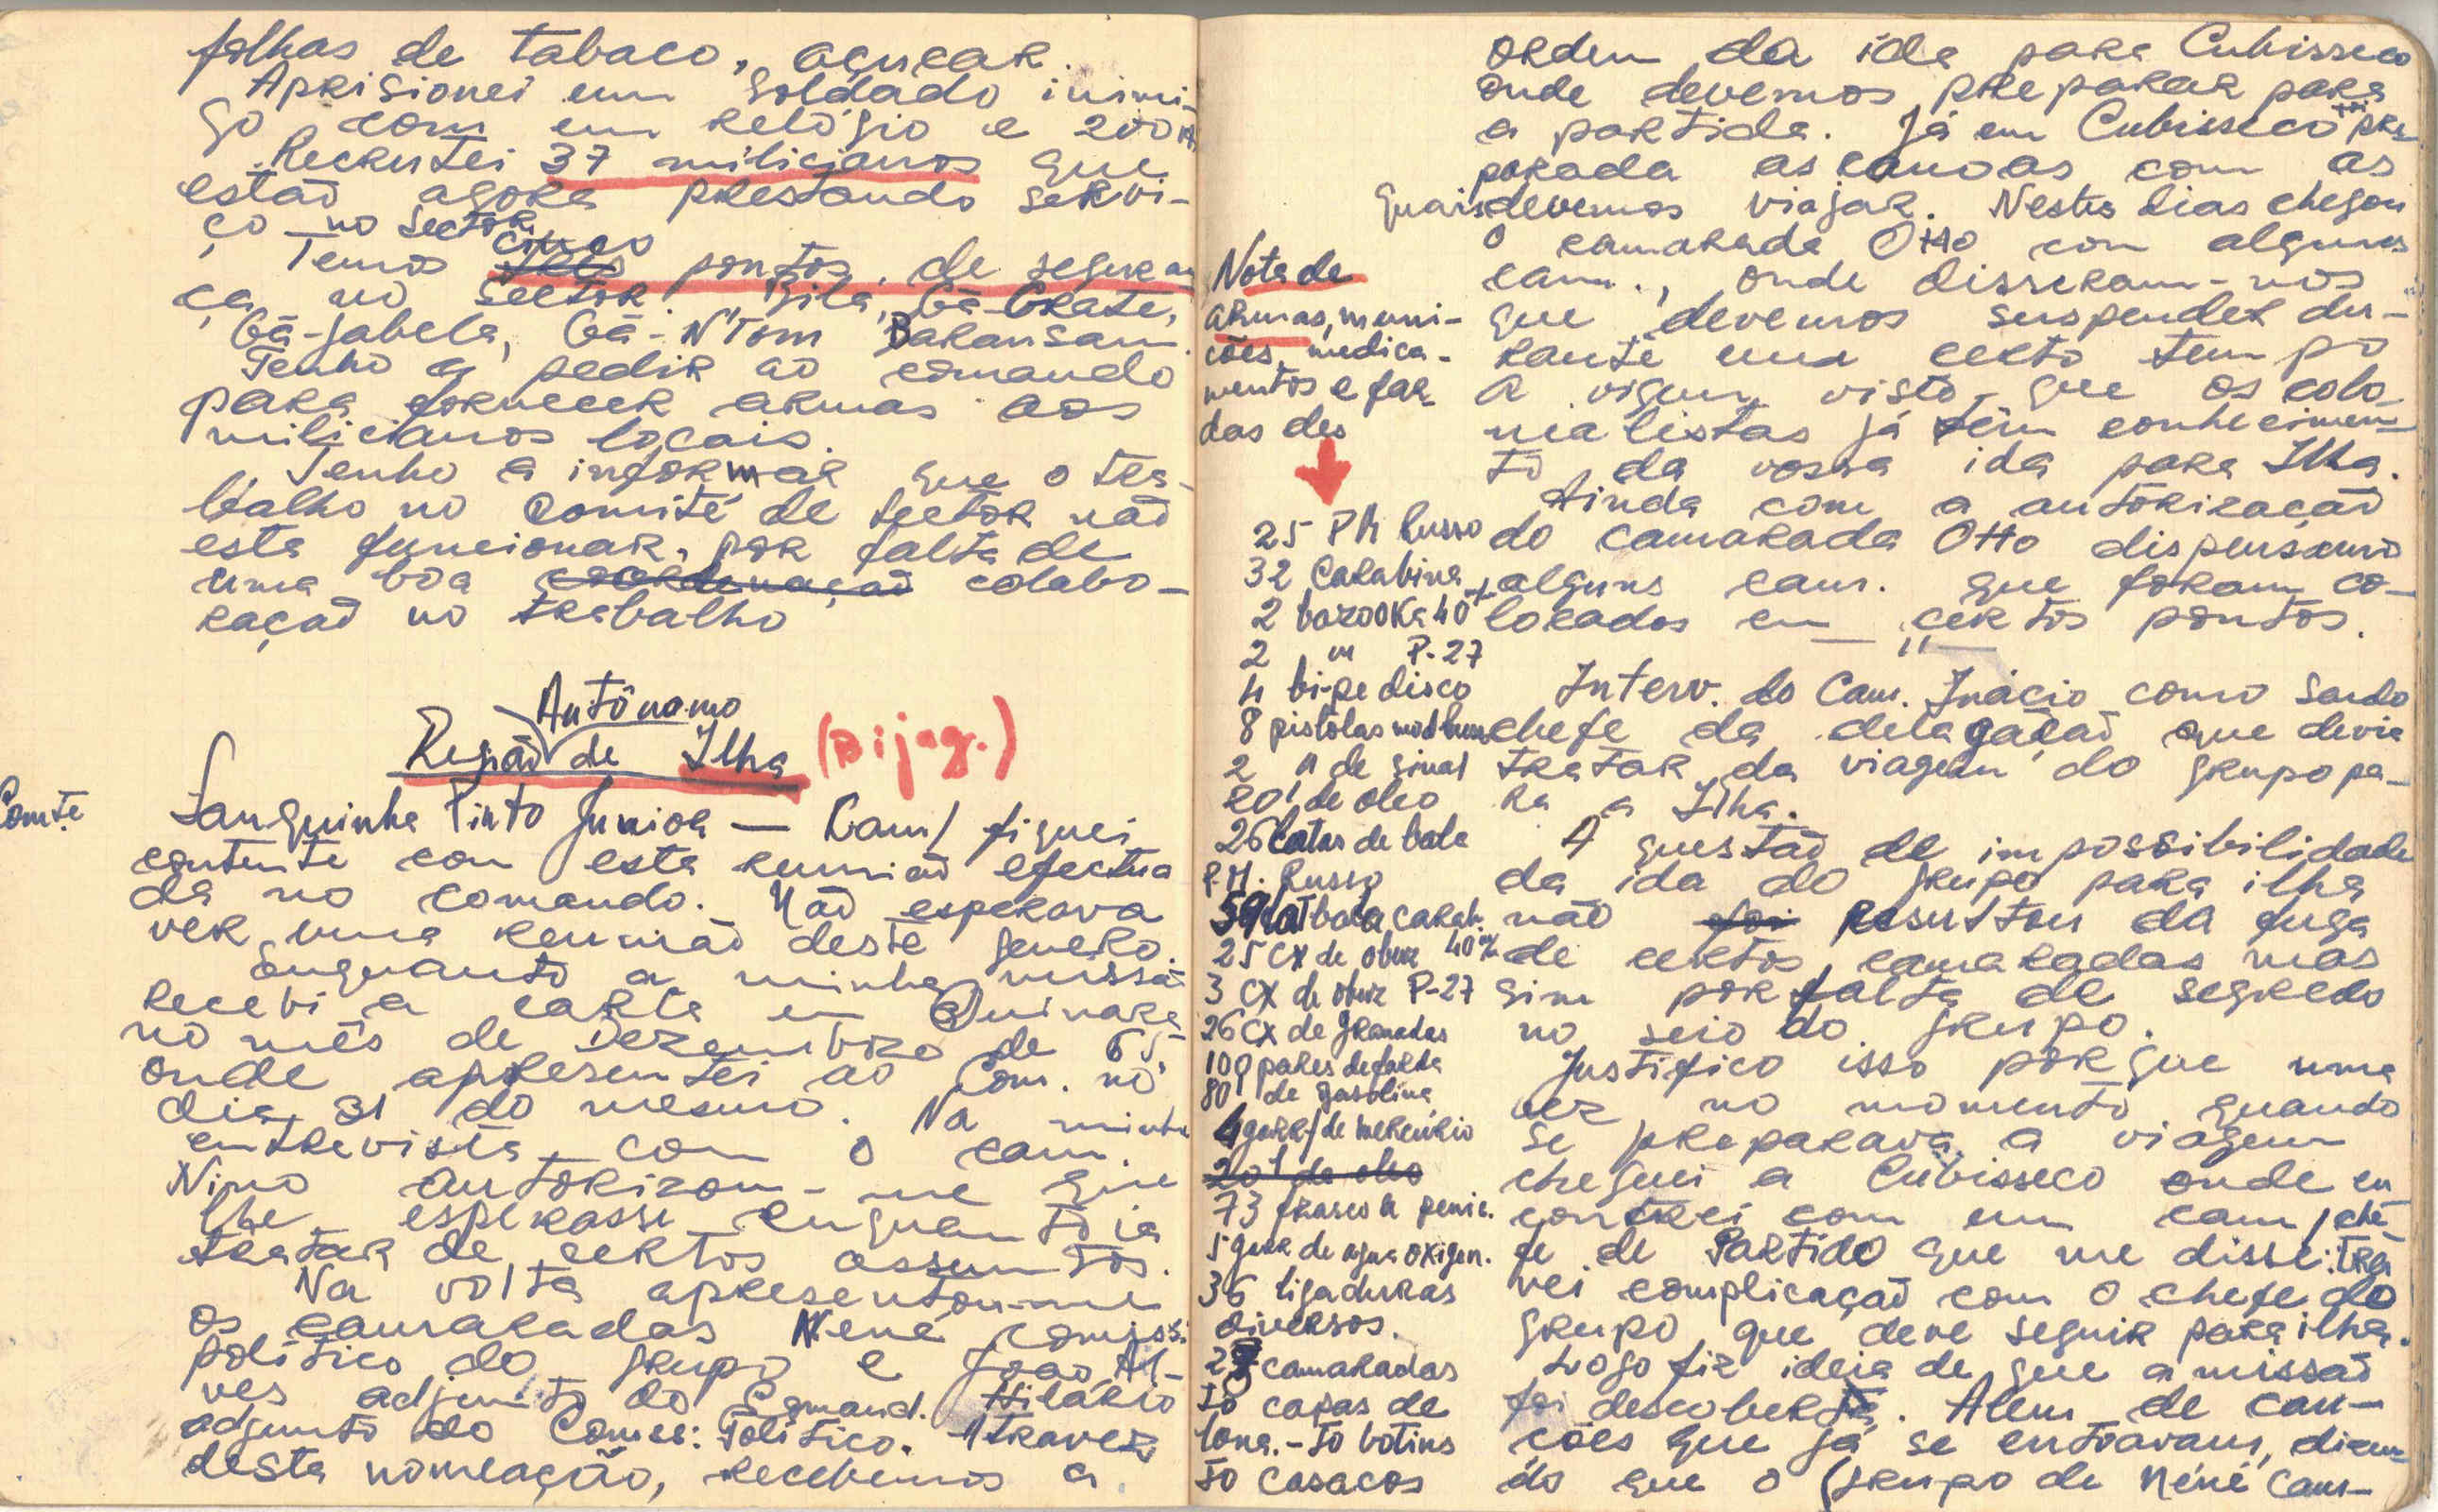 folhas de tabaco, açucar.
Aprisionei um soldado inimi-
go com um relógio e 200
Recrutei 37 milicianos que
estaõ agora prestando servi-
ço no Sector.
cinco
Temos pontos de seguran
ça no Sector. Bilá, Gã-Grate,
Gã-Jabela, Gã-N'Tom Baransam.
Tenho a pedir ao comando
para fornecer armas aos
milicianos locais.
Tenho a informar que o tra-
balho no Comité de sector naõ
esta funcionar, por falta de
uma boa coordenaçaõ colabo-
raçaõ no trabalho
Autônamo
Regiaõ de Ilha (Bijag.)
Comte
Sanguinha Pinto Junior — Cam/ fiquei
contente com esta reuniaõ efectua
da no comando. Naõ esperava
ver uma reuniaõ deste genero.
Enquanto a minha missaõ
recebi a carta em Quinara
no mês de Dezembro de 65
onde apresentei ao Com. no
dia 31 do mesmo. Na minha
entrevista com o cam.
Nino autorizou-me que
lhe esperasse enquanto ia
tratar de certos assuntos.
Na volta apresentou-me
os camaradas Nené comiss.
político do grupo e Joaõ Al-
ves adjunto do Comand. Hilário
adjunto do Comiss: Político. Atravez
desta nomeação, recebemos a
Nota de
armas, muni-
ções, medica-
mentos e far-
das des
25 PM Russo
32 Carabina
2 bazooka 40
2 " P-27
4 bi-pe disco
8 pistolas
2 " de sinal
20 l de oleo
26 latas de bala
P.M. Russo
59 lat bala carab.
25 cx de obuz 40
3 cx de obuz P-27
26 cx de granadas
100 pares de farda
80 l de gasolina
4 garr/ de mercúrio
20 l de oleo
73 frasco penic.
5 garr de agua oxigen.
36 ligaduras
diversos.
camaradas
to capas de
lona. - to botins
to casacos
ordem da ida para Cubisseco
onde devemos preparar para
a partida. Já em Cubisseco foi pre
parada as canoas com as
quais devemos viajar. Nestes dias chegou
o camarada Otto com alguns
cam., onde disseram-nos
que devemos suspender du-
rante um certo tempo
a viagem visto que os colo-
nialistas já têm conhecimen-
to da vossa ida para Ilha.
Ainda com a autorizaçaõ
do camarada Otto dispensamo
alguns cam. que foram co-
locados em certos pontos.
— " —
Interv. do Cam. Inácio como sendo
chefe da delagaçaõ que devia
tratar da viagem do grupo pa-
ra a Ilha.
A questaõ de impossibilidade
da ida do grupo para ilha
não foi resultou da fuga
de certos camaradas mas
sim por falta de segredo
no seio do grupo.
Justifico isso porque uma
vez no momento quando
se preparava a viagem
cheguei a Cubisseco onde en
contrei com um cam/ che
fe de Partido que me disse: tra
vei complicaçaõ com o chefe do
grupo que deve seguir para ilha.
Logo fiz ideia de que a missaõ
foi descoberta. Alem de can-
ções que já se entoavam, dizen-
do que o grupo de Néné Cam-